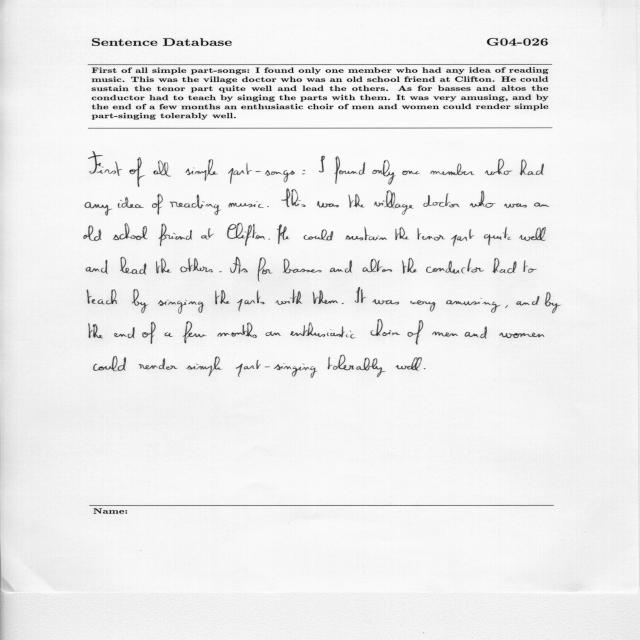 Sentence Database G04-026
First of all simple part-songs: I found only one member who had any idea of reading
music. This was the village doctor who was an old school friend at Clifton. He could
sustain the tenor part quite well and lead the others. As for basses and altos the
conductor had to teach by singing the parts with them. It was very amusing, and by
the end of a few months an enthusiastic choir of men and women could render simple
part-singing tolerably well.
First of all simple part-songs : I found only one member who had
any idea of reading music. This was the village doctor who was an
old school friend at Clifton. He could sustain the tenor part quite well
and lead the others. As for basses and altos the conductor had to
teach by singing the parts with them. It was very amusing, and by
the end of a few months an enthusiastic choir of men and women
could render simple part-singing tolerably well.
Name: